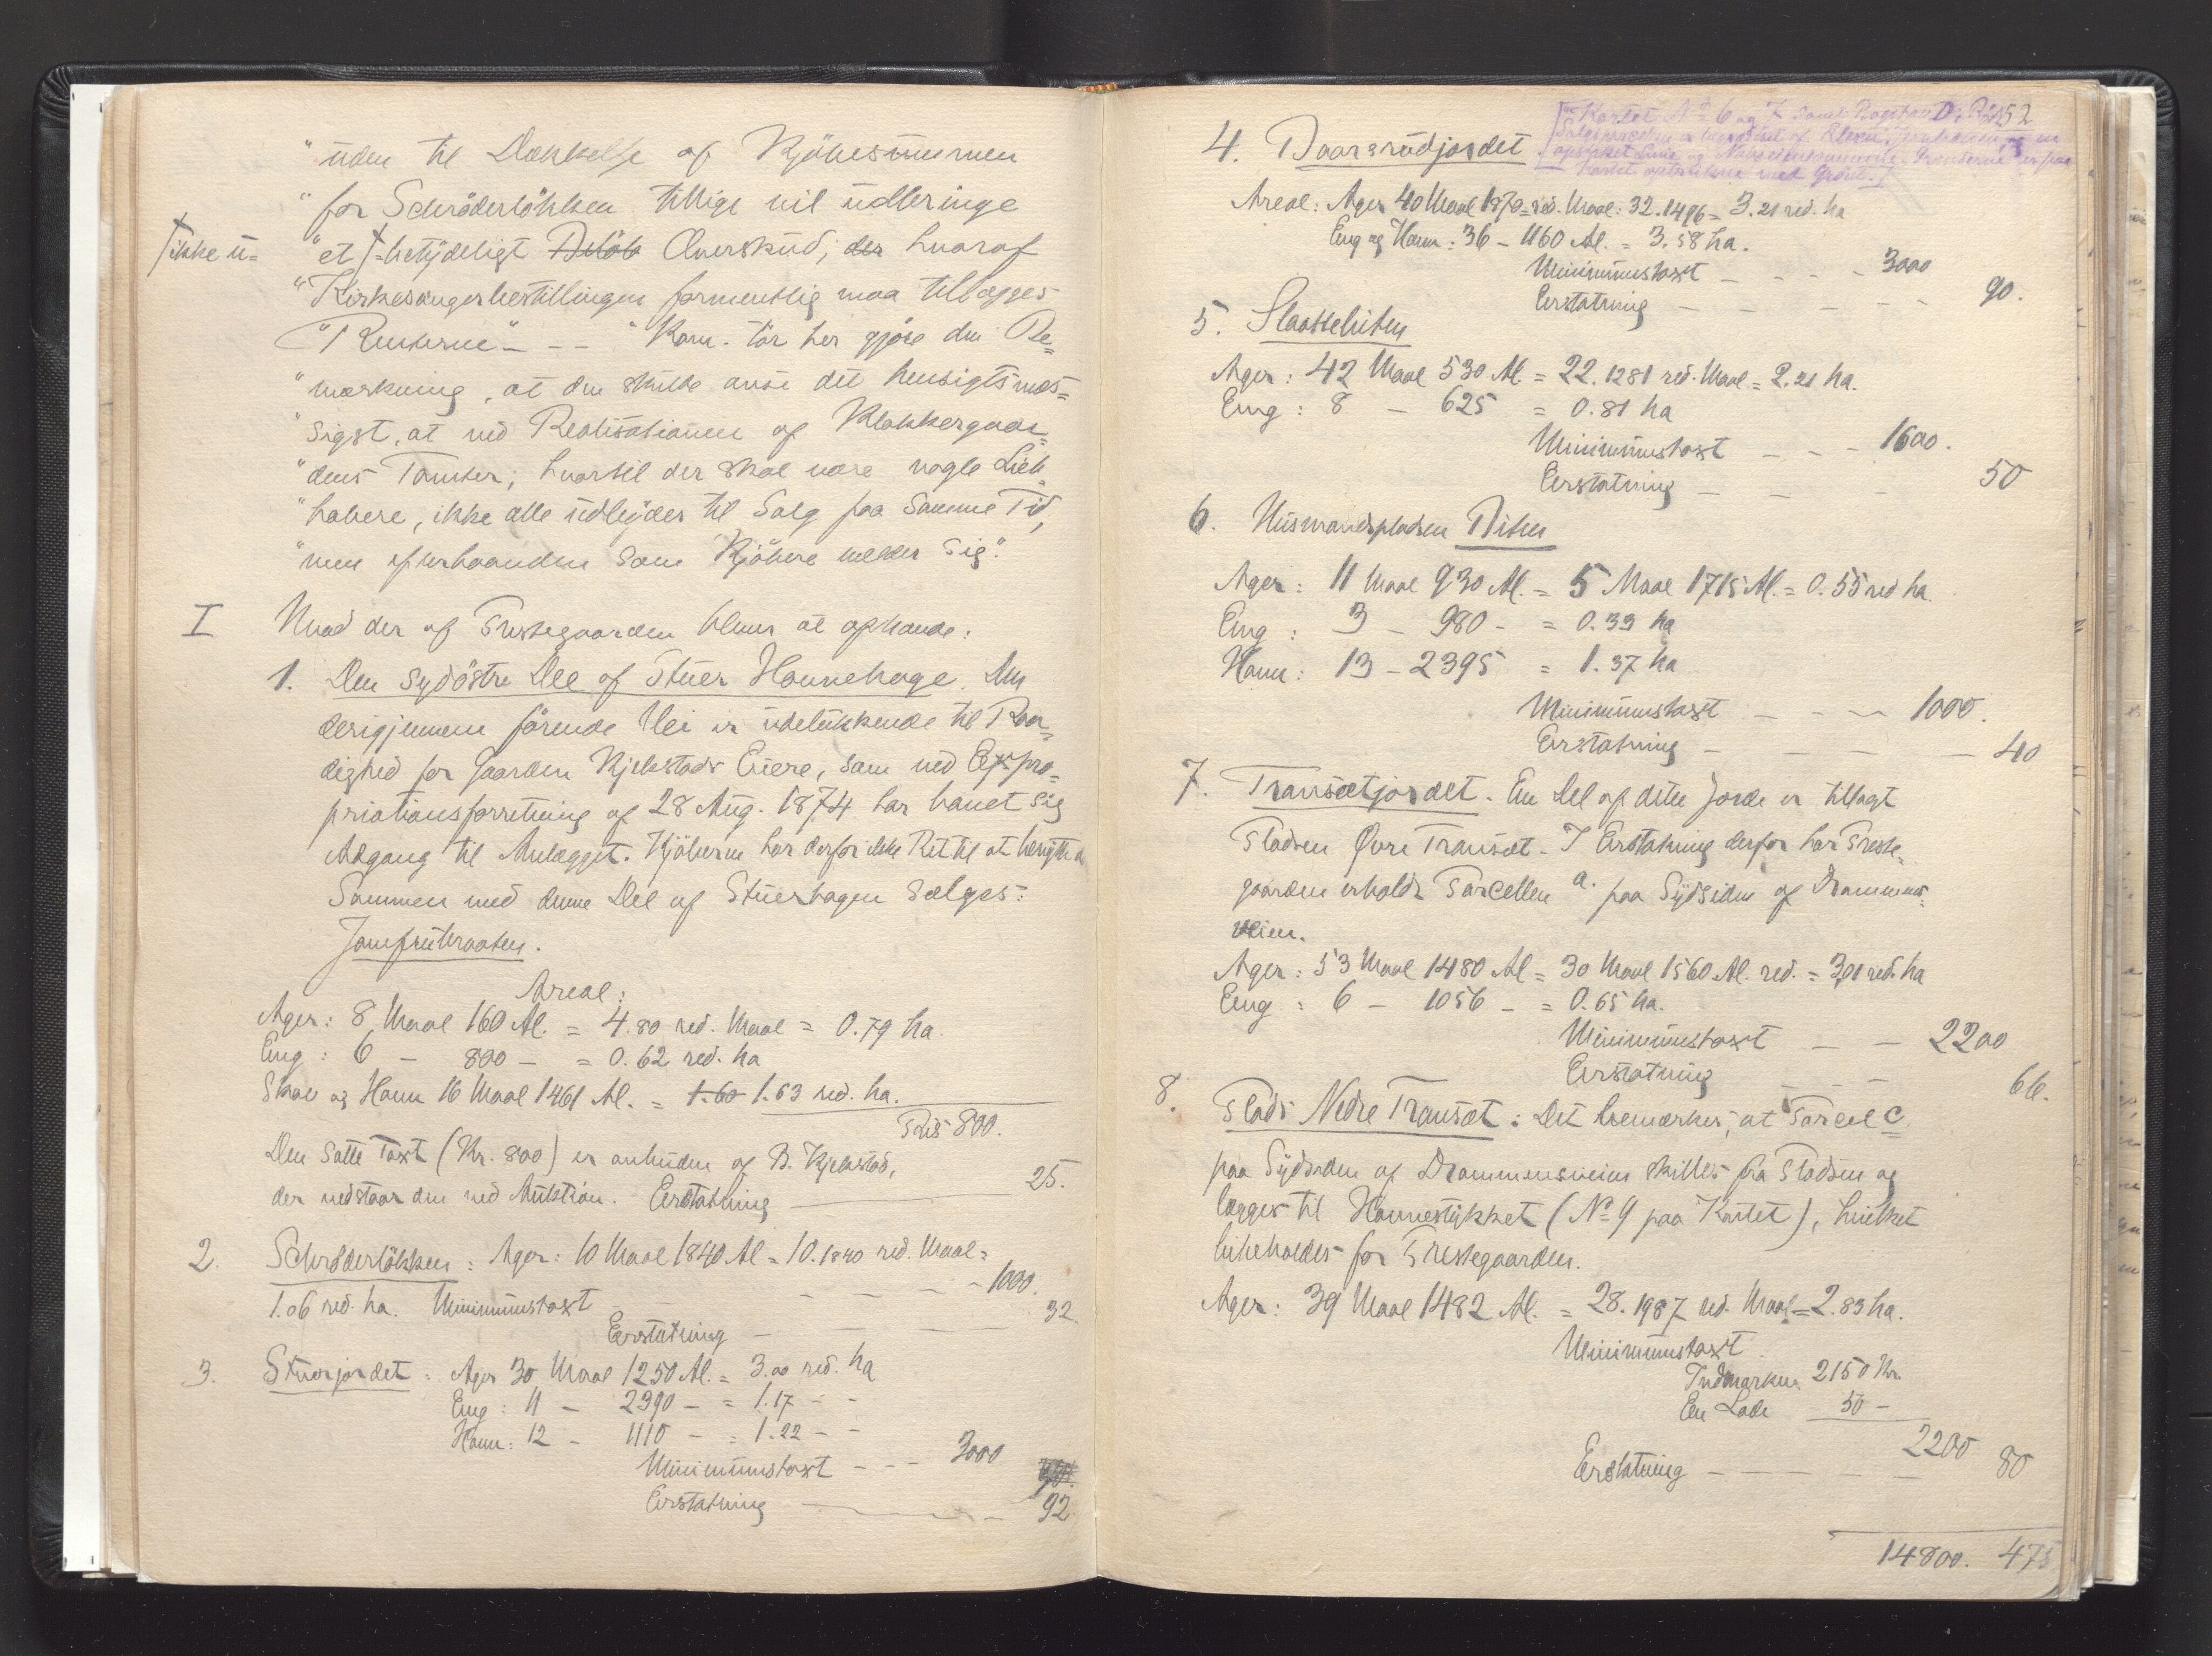 "uden til Dækkelse af Kjøbesummen
"for Schrøderløkken tillige vil udbringe
/ikke u= "et /=betydeligt Beløb Overskud, der hvoraf
"Kirkesangerbestillingen formentlig maa tillægges
"Renterne" - - - "Kom. tør her gjøre den Be=
"mærkning, at den skulde anse det hensigtsmæs=
"sigst, at ved Realisationen af Klokkergaar=
"dens Tomter, hvortil der skal være nogle Lieb=
"habere, ikke alle udbydes til Salg paa samme Tid,
"men efterhaanden som Kjøbere melder sig".
I Hvad der af Prestegaarden bliver at afhænde:
1. Den sydøstre Del af Stuer Havnehage. Den
derigjennem førende Vei er udelukkende til Raa=
dighed for Gaarden Kjekstads Eiere, som ved Expro=
priationsforretning af 28 Aug. 1874 har havet sig
Adgang til Anlægget. Kjøberen har derfor ikke Ret til at benytte
Sammen med denne Del af Stuerhagen sælges:
Jomfrubraaten.
Areal:
Ager: 8 Maal 160 Al. = 4.80 red. Maal = 0.79 ha.
Eng: 6 - 800 - = 0.62 red. ha
Skov og Havn 16 Maal 1461 Al. = 1.60 1.63 red. ha.
Pris 800.
Den satte Taxt (Kr. 800) er anbuden af B. Kjekstad,
der vedstaar den ved Auktion. Erstatning 25.
2. Schrøderløkken: Ager: 10 Maal 1840 Al = 10.1840 red. Maal =
1.06 red. ha. Minimumstaxt - - - 1000.
Erstatning - - - 32.
3. Stuerjordet: Ager 30 Maal 1250 Al. = 3.00 red. ha
Eng: 11 - 2390 - = 1.17 - -
Havn: 12 - 1110 - = 1.22 - -
Minimumstaxt - - - 3000
Erstatning - 92
52
Kartet No 6 og 7
4. Daarsrudjordet
Areal: Ager 40 Maal 1870 = red. Maal: 32.1496 = 3.21 red. ha
Eng og Havn: 36 - 1160 Al. = 3.58 ha.
Minimumstaxt - - - 3000
Erstatning - - - 90.
5. Slaattelifen
Ager: 42 Maal 530 Al. = 22.1281 red. Maal = 2.21 ha.
Eng: 8 - 625 = 0.81 ha
Minimumstaxt - - - 1600.
Erstatning - - - 50
6. Husmandspladsen Viten
Ager: 11 Maal 930 Al. = 5 Maal 1715 Al. = 0.55 red ha.
Eng: 3 - 980 - = 0.33 ha
Havn: 13 - 2395 = 1.37 ha
Minimumstaxt - - - 1000.
Erstatning - - - 40
7. Transætjordet. En Del af dette Jorde er tillagt
Pladsen Øvre Transæt. I Erstatning derfor har Preste=
gaarden erholdt Parcellen a. paa Sydsiden af Drammens=
veien.
Ager: 53 Maal 1480 Al = 30 Maal 1560 Al. red. = 3,01 red. ha
Eng: 6 - 1056 - = 0.65 ha.
Minimumstaxt - - 2200
Erstatning - - - 66.
8. Plads Nedre Transæt: Det bemærkes, at Parcel C
paa Sydsiden af Drammensveien skilles fra Pladsen og
lægges til Havnestykket (No 9 paa Kartet), hvilket
bibeholdes for Prestegaarden.
Ager: 39 Maal 1482 Al. = 28.1987 red. Maal = 2.83 ha.
Minimumstaxt
Indmarken 2150 Kr.
En Lade 50 -
2200
Erstatning - - - 80
14800. 475